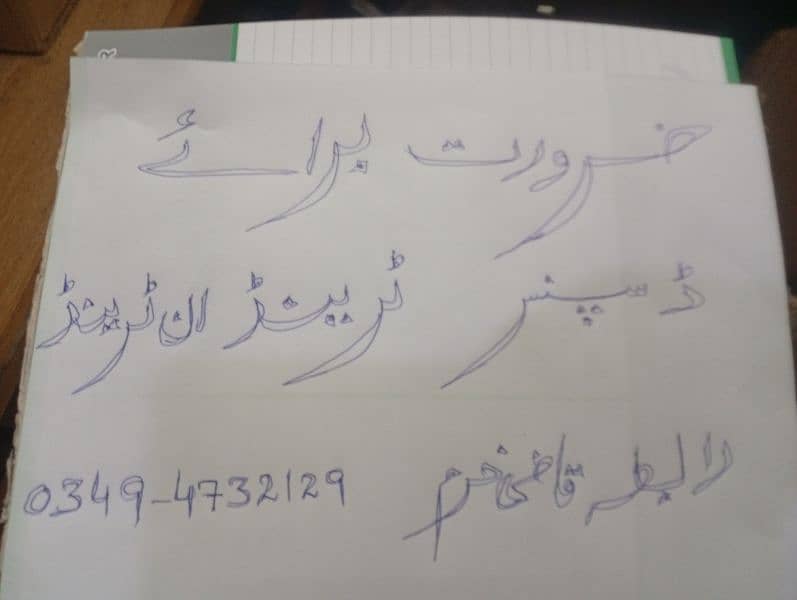 ضرورت برائے
ڈسپنسر ٹرینڈ ان ٹرینڈ
رابطہ قاضی خرم 0349-4732129